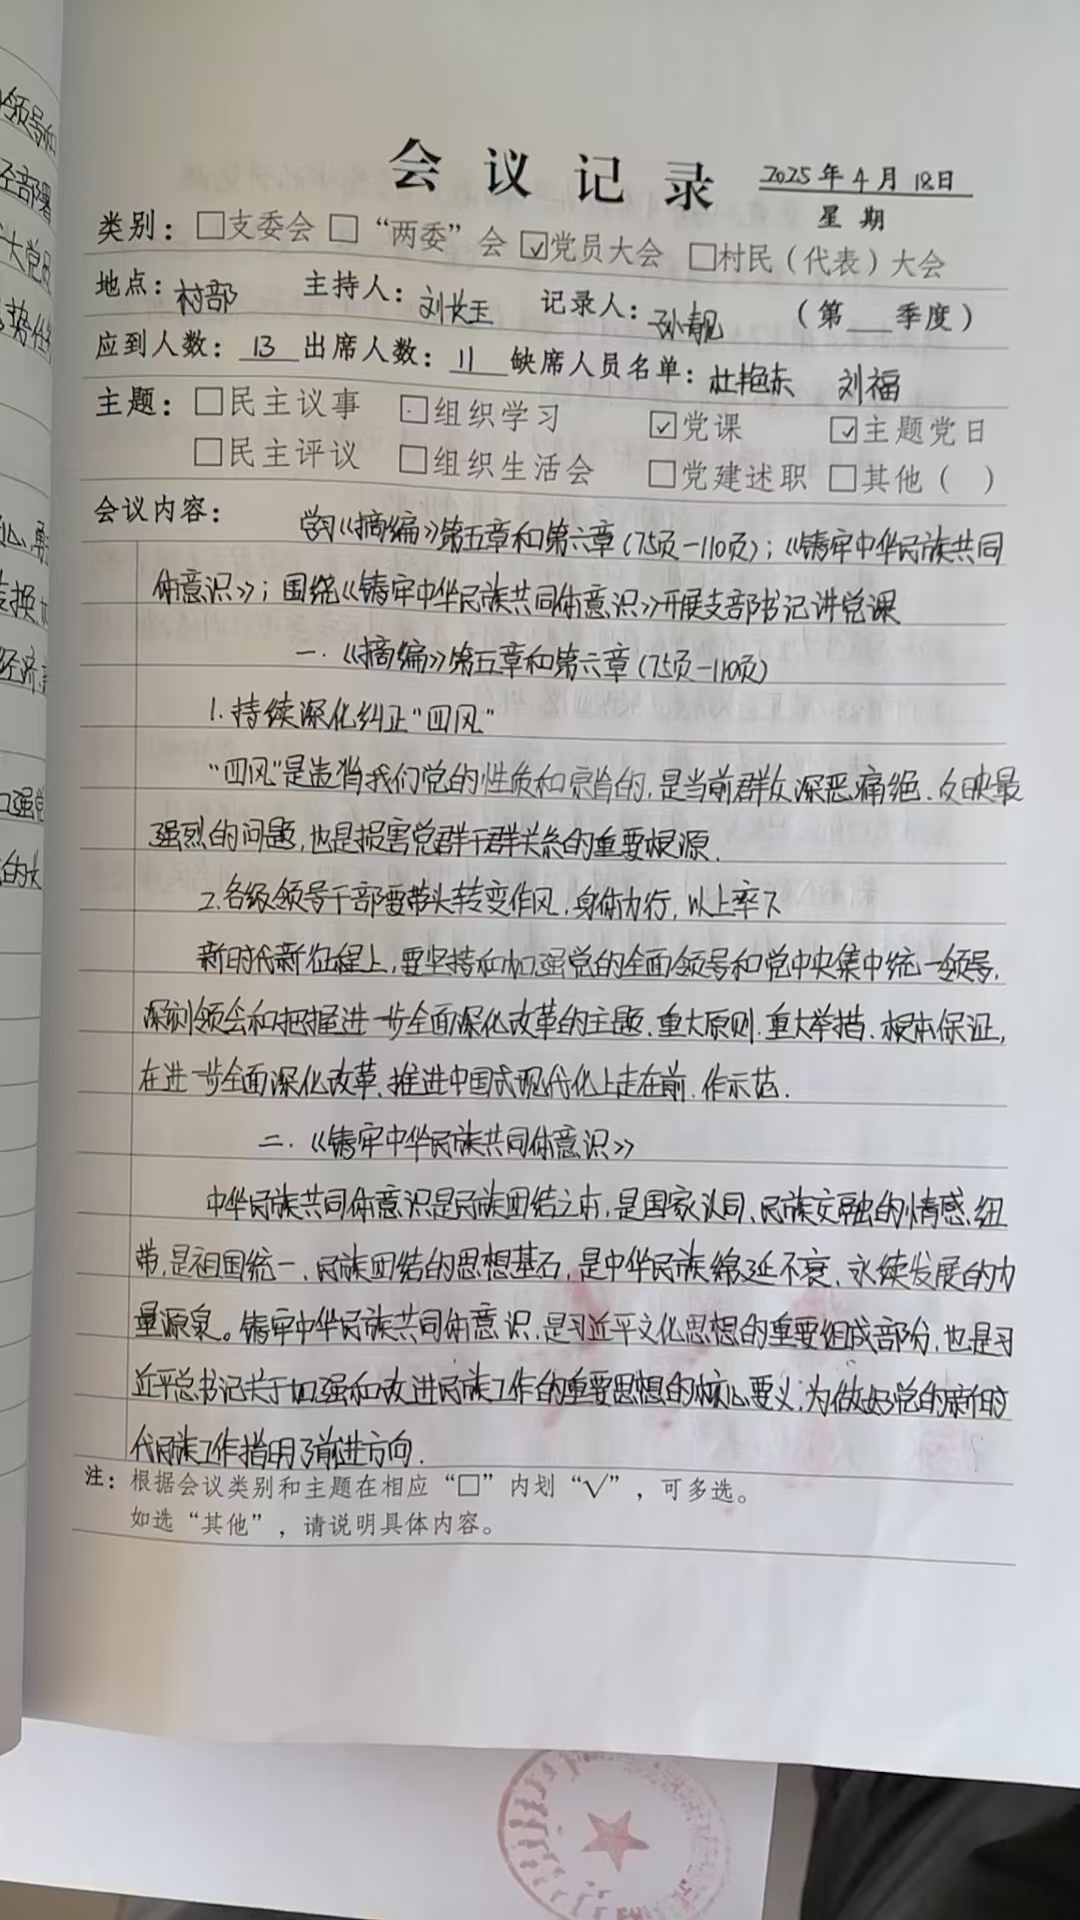 会议记录 2025年4月18日
星期
类别：□支委会 □“两委”会 ☑党员大会 □村民（代表）大会
地点：村部 主持人：刘长玉 记录人：孙靓 （第 季度）
应到人数：13 出席人数：11 缺席人员名单：杜艳东 刘福
主题：□民主议事 □组织学习 ☑党课 ☑主题党日
□民主评议 □组织生活会 □党建述职 □其他（ ）
会议内容： 学习《摘编》第五章和第六章(75页-110页)；《铸牢中华民族共同
体意识》；围绕《铸牢中华民族共同体意识》开展支部书记讲党课
一.《摘编》第五章和第六章(75页-110页)
1.持续深化纠正“四风”
“四风”是违背我们党的性质和宗旨的，是当前群众深恶痛绝、反映最
强烈的问题，也是损害党群干群关系的重要根源.
2.各级领导干部要带头转变作风，身体力行，以上率下
新时代新征程上，要坚持和加强党的全面领导和党中央集中统一领导，
深刻领会和把握进一步全面深化改革的主题、重大原则、重大举措、根本保证，
在进一步全面深化改革、推进中国式现代化上走在前、作示范.
二.《铸牢中华民族共同体意识》
中华民族共同体意识是民族团结之本，是国家认同、民族交融的情感纽
带，是祖国统一、民族团结的思想基石，是中华民族绵延不衰、永续发展的力
量源泉。铸牢中华民族共同体意识，是习近平文化思想的重要组成部分，也是习
近平总书记关于加强和改进民族工作的重要思想的核心要义，为做好党的新时
代民族工作指明了前进方向.
注：根据会议类别和主题在相应“□”内划“√”，可多选。
如选“其他”，请说明具体内容。